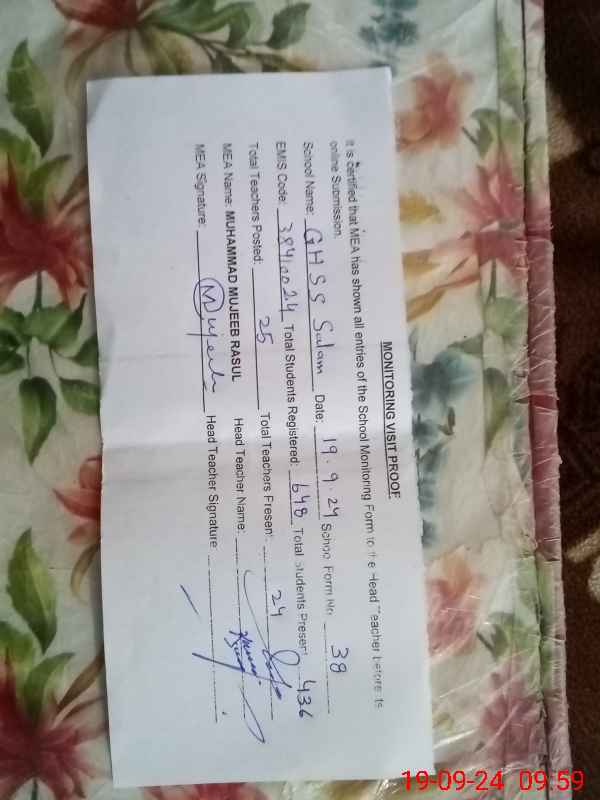 MONITORING VISIT PROOF
It is certified that MEA has shown all entries of the School Monitoring Form to the Head Teacher before its
online Submission.
School Name: GHSS Salam Date: 19.9.24 School Form No. 38
EMIS Code: 38410024 Total Students Registered: 648 Total Students Present 436
Total Teachers Posted: 25 Total Teachers Present: 24
MEA Name: MUHAMMAD MUJEEB RASUL Head Teacher Name:
MEA Signature: Mujeeb Head Teacher Signature
19-09-24 09:59